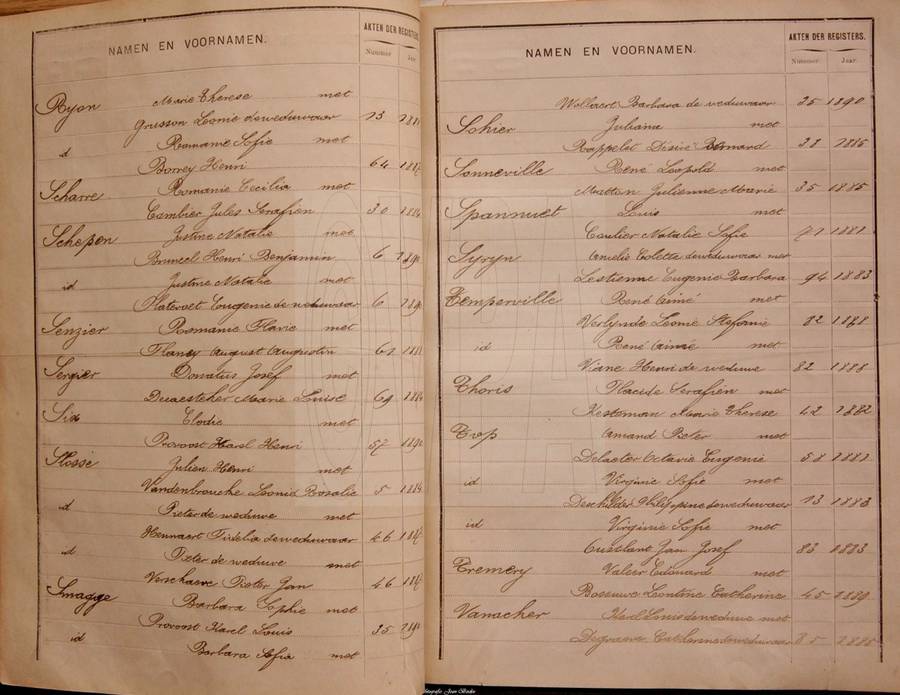 NAMEN EN VOORNAMEN.
AKTEN DER REGISTERS.
Nummer
Ryon Marie Therese met
Grusson Leonie de weduwaar 13
id Romanie Sofie met
Borrey Henri 64
Scharre Romanie Cecilia met
Cambier Jules Serafien 30
Schepen Justine Natalie met
Bruneel Henri Benjamin 6
id Justine Natalie met
Platevoet Eugenie de weduwaar 6
Senzier Romanie Flavie met
August Augustin
Sergier Donatus Josef met
Marie Louise 69
Six Elodie met
Provoost Karel Henri 57
Slosse Julien Henri met
Vandenbrouche Leonie Rosalie 5
id Pieter de weduwe met
Hennaert Fidelia de weduwaar 46
id Pieter de weduwe met
Verschaeve Pieter Jan 46
Smagge Barbara Sophie met
Provoost Karel Louis 35
id Barbara Sofia met
NAMEN EN VOORNAMEN.
AKTEN DER REGISTERS.
Nummer Jaar
Wollaert Barbara de weduwaar 25 1890
Sohier Juliana met
Rappelet Disiré Bernard
Sonneville René Leopold met
Matten Julienne Marie 35 1885
Spannuet Louis met
Caulier Natalie Sofie
Syryn Amelie Colette de weduwaar met
Lestienne Eugenie Barbara 94 1883
Temperville René Aimé met
Verlynde Leonie Stefanie 82 1888
id René Aimé met
Viane Henri de weduwe 82 1888
Thoris Placide Serafien met
Kesteman Marie Therese 42 1882
Trop Amand Pieter met
Delaeter Octavie Eugenie 58
id Virginie Sofie met
Philippine de weduwaar 13 1883
id Virginie Sofie met
Jan Josef 83 1883
Tremery Valeir Edouard met
Leontine Catherine 45 1889
Vanacher Karel Louis de weduwe met
Degraeve Catharina de weduwaar 85
Fotografie Joan Bladin